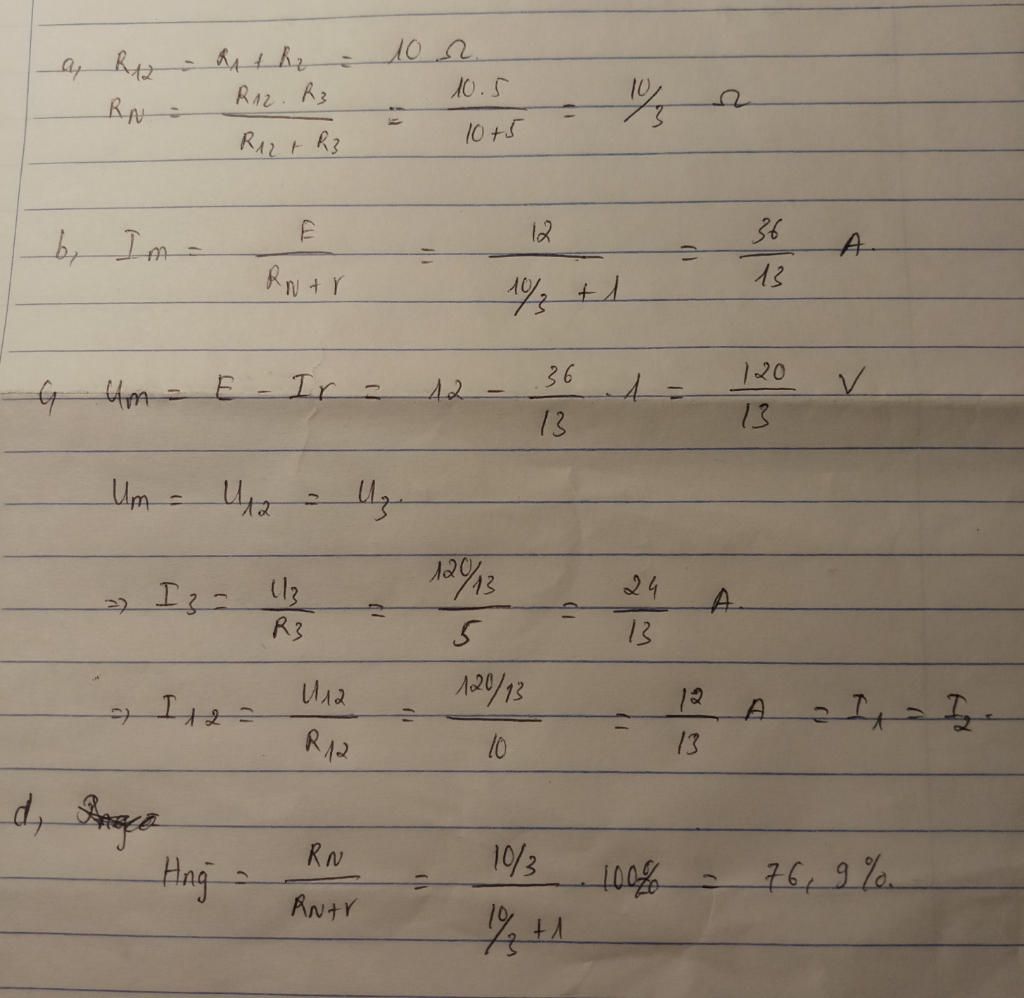 a, R12 = R1 + R2 = 10 Ω.
RN = R12 . R3 / R12 + R3 = 10.5 / 10+5 = 10/3 Ω
b, Im = E / RN + r = 12 / 10/3 + 1 = 36/13 A.
c, Um = E - Ir = 12 - 36/13 . 1 = 120/13 V
Um = U12 = U3.
=> I3 = U3/R3 = 120/13 / 5 = 24/13 A.
=> I12 = U12/R12 = 120/13 / 10 = 12/13 A = I1 = I2.
d,
Hng = RN / RN+r = 10/3 / 10/3 + 1 . 100% = 76,9%.